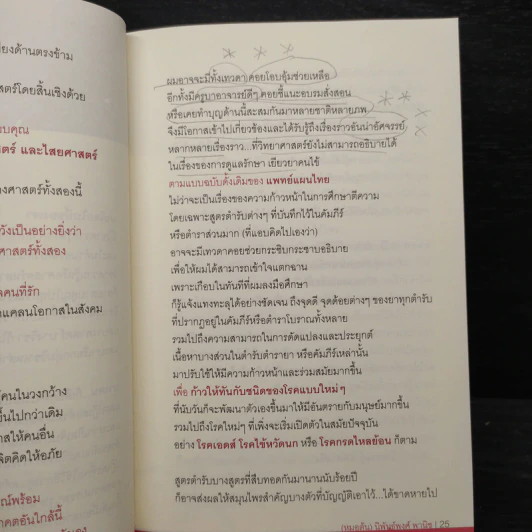 ยงด้านตรงข้าม
าสตร์โดยสิ้นเชิงด้วย
บคุณ
ตร์ และไสยศาสตร์
งศาสตร์ทั้งสองนี้
วังเป็นอย่างยิ่งว่า
าศาสตร์ทั้งสอง
งคนที่รัก
าแคลนโอกาสในสังคม
์คนในวงกว้าง
ขึ้นไปกว่าเดิม
าสให้คนอื่น
จิตคิดให้อภัย
ณ์พร้อม
าคตอันใกล้นี้
ผมอาจจะมีทั้งเทวดา คอยโอบอุ้มช่วยเหลือ
อีกทั้งมีครูบาอาจารย์ดีๆ คอยชี้แนะอบรมสั่งสอน
หรือเคยทำบุญด้านนี้สะสมกันมาหลายชาติหลายภพ
จึงมีโอกาสเข้าไปเกี่ยวข้องและได้รับรู้ถึงเรื่องราวอันน่าอัศจรรย์
หลากหลายเรื่องราว... ที่วิทยาศาสตร์ยังไม่สามารถอธิบายได้
ในเรื่องของการดูแลรักษา เยียวยาคนไข้
ตามแบบฉบับดั้งเดิมของ แพทย์แผนไทย
ไม่ว่าจะเป็นเรื่องของความก้าวหน้าในการศึกษาตีความ
โดยเฉพาะสูตรตำรับต่างๆ ที่บันทึกไว้ในคัมภีร์
หรือตำราส่วนมาก (ที่แอบคิดไปเองว่า)
อาจจะมีเทวดาคอยช่วยกระซิบกระซาบอธิบาย
เพื่อให้ผมได้สามารถเข้าใจแตกฉาน
เพราะเกือบในทันทีที่ผมลงมือศึกษา
ก็รู้แจ้งแทงทะลุได้อย่างชัดเจน ถึงจุดดี จุดด้อยต่างๆ ของยาทุกตำรับ
ที่ปรากฏอยู่ในคัมภีร์หรือตำราโบราณทั้งหลาย
รวมไปถึงความสามารถในการดัดแปลงและประยุกต์
เนื้อหาบางส่วนในตำรับตำรายา หรือคัมภีร์เหล่านั้น
มาปรับใช้ให้มีความก้าวหน้าและร่วมสมัยมากขึ้น
เพื่อ ก้าวให้ทันกับชนิดของโรคแบบใหม่ๆ
ที่นับวันก็จะพัฒนาตัวเองขึ้นมาให้มีอันตรายกับมนุษย์มากขึ้น
รวมไปถึงโรคใหม่ๆ ที่เพิ่งจะเริ่มเปิดตัวในสมัยปัจจุบัน
อย่าง โรคเอดส์ โรคไข้หวัดนก หรือ โรคกรดไหลย้อน ก็ตาม
สูตรตำรับบางสูตรที่สืบทอดกันมานานนับร้อยปี
ก็อาจส่งผลให้สมุนไพรสำคัญบางตัวที่บัญญัติเอาไว้... ได้ขาดหายไป
(หมอต้น) นิพันธ์พงศ์ พานิช | 25